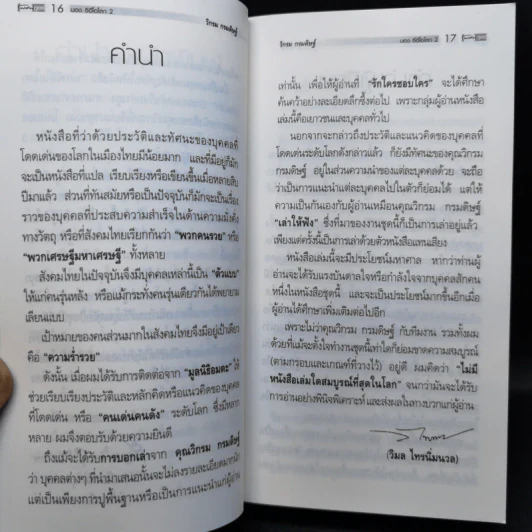 16 มอง ซีอีโอโลก 2
วิกรม กรมดิษฐ์
คำนำ
หนังสือที่ว่าด้วยประวัติและทัศนะของบุคคลที่
โดดเด่นของโลกในเมืองไทยมีน้อยมาก และที่มีอยู่ก็มัก
จะเป็นหนังสือที่แปล เรียบเรียงหรือเขียนขึ้นเมื่อหลายสิบ
ปีมาแล้ว ส่วนที่ทันสมัยหรือเป็นปัจจุบันก็มักจะเป็นเรื่อง
ราวของบุคคลที่ประสบความสำเร็จในด้านความมั่งคั่ง
ทางวัตถุ หรือที่สังคมไทยเรียกกันว่า "พวกคนรวย" หรือ
"พวกเศรษฐีมหาเศรษฐี" ทั้งหลาย
สังคมไทยในปัจจุบันจึงมีบุคคลเหล่านี้เป็น "ตัวแบบ"
ให้แก่คนรุ่นหลัง หรือแม้กระทั่งคนรุ่นเดียวกันได้พยายาม
เลียนแบบ
เป้าหมายของคนส่วนมากในสังคมไทยจึงมีอยู่เป้าเดียว
คือ "ความร่ำรวย"
ดังนั้น เมื่อผมได้รับการติดต่อจาก "มูลนิธิอมตะ" ให้
ช่วยเรียบเรียงประวัติและหลักคิดหรือแนวคิดของบุคคล
ที่โดดเด่น หรือ "คนเด่นคนดัง" ระดับโลก ซึ่งมีหลาก
หลาย ผมจึงตอบรับด้วยความยินดี
ถึงแม้จะได้รับการบอกเล่าจาก คุณวิกรม กรมดิษฐ์
ว่า บุคคลต่างๆ ที่นำมาเสนอนั้นจะไม่ลงรายละเอียดมากนัก
แต่เป็นเพียงการปูพื้นฐานหรือเป็นการแนะนำแก่ผู้อ่าน
วิกรม กรมดิษฐ์
มอง ซีอีโอโลก 2 17
เท่านั้น เพื่อให้ผู้อ่านที่ "รักใครชอบใคร" จะได้ศึกษา
ค้นคว้าอย่างละเอียดลึกซึ้งต่อไป เพราะกลุ่มผู้อ่านหนังสือ
เล่มนี้คือเยาวชนและบุคคลทั่วไป
นอกจากจะกล่าวถึงประวัติและแนวคิดของบุคคลที่
โดดเด่นระดับโลกดังกล่าวแล้ว ก็ยังมีทัศนะของคุณวิกรม
กรมดิษฐ์ อยู่ในส่วนความนำของแต่ละบุคคลด้วย จะถือ
ว่าเป็นการแนะนำแต่ละบุคคลไปในตัวก็ย่อมได้ แต่ให้
ความเป็นกันเองกับผู้อ่านเหมือนคุณวิกรม กรมดิษฐ์
"เล่าให้ฟัง" ซึ่งที่มาของงานชุดนี้ก็เป็นการเล่าอยู่แล้ว
เพียงแต่ครั้งนี้เป็นการเล่าด้วยตัวหนังสือแทนเสียง
หนังสือเล่มนี้จะมีประโยชน์มหาศาล หากว่าท่านผู้
อ่านจะได้รับแรงบันดาลใจหรือกำลังใจจากบุคคลสักคน
หนึ่งในหนังสือชุดนี้ และจะเป็นประโยชน์มากขึ้นอีกเมื่อ
ผู้อ่านได้ศึกษาเพิ่มเติมต่อไปอีก
เพราะไม่ว่าคุณวิกรม กรมดิษฐ์ กับทีมงาน รวมทั้งผม
ด้วยที่แม้จะตั้งใจทำงานชุดนี้เท่าใดก็ย่อมขาดความสมบูรณ์
(ตามกรอบและเกณฑ์ที่วางไว้) อยู่ดี ผมคิดว่า "ไม่มี
หนังสือเล่มใดสมบูรณ์ที่สุดในโลก" จนกว่ามันจะได้รับ
การอ่านอย่างพินิจพิเคราะห์ และส่งผลในทางบวกแก่ผู้อ่าน
(วิมล ไทรนิ่มนวล)